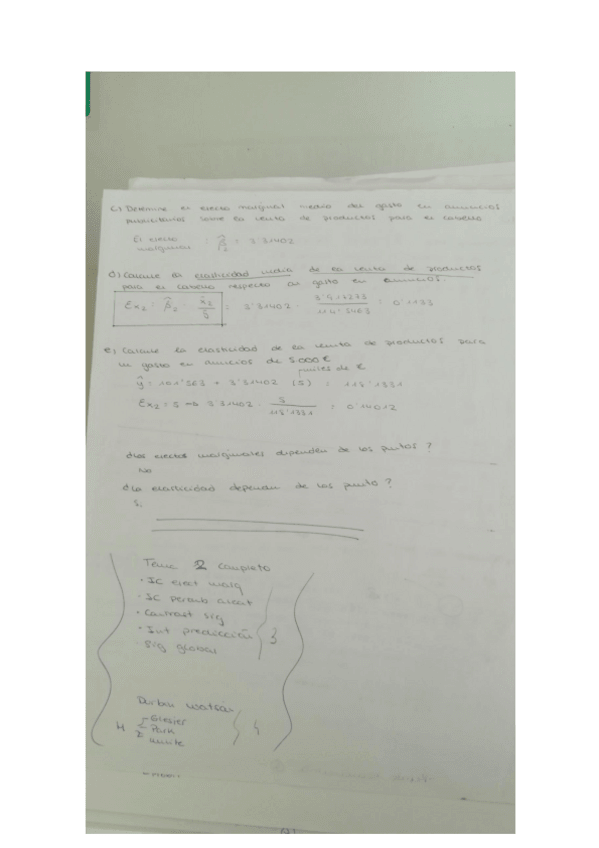 c) Determine el efecto marginal medio del gasto en anuncios
publicitarios sobre la venta de productos para el cabello
El efecto marginal : β̂₂ = 3'31402
d) Calcule la elasticidad media de la venta de productos
para el cabello respecto al gasto en anuncios.
Ex₂ = β̂₂ · x̄₂/ȳ = 3'31402 · 3'917273/114'5463 = 0'1133
e) Calcule la elasticidad de la venta de productos para
un gasto en anuncios de 5.000€
miles de €
ŷ = 101'563 + 3'31402 (5) = 118'1331
Ex₂ = 5 → 3'31402 · 5/118'1331 = 0'14012
¿Los efectos marginales dependen de los puntos?
No
¿La elasticidad depende de los punto?
Si
Tema 2 completo
· IC efect marg
· IC
· Contrast sig
· Int predicción
· Sig global
3
Durbin Watson
Glesjer
H Park
White
4